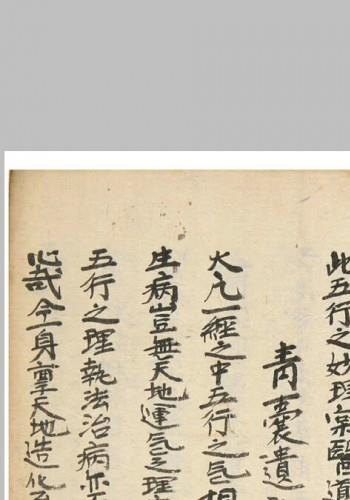 此五行之妙理宗醫道
青囊遺
大凡一經之中五行之气相
生病豈無天地運气之理
五行之理執法治病亦
心哉今一身稟天地造化